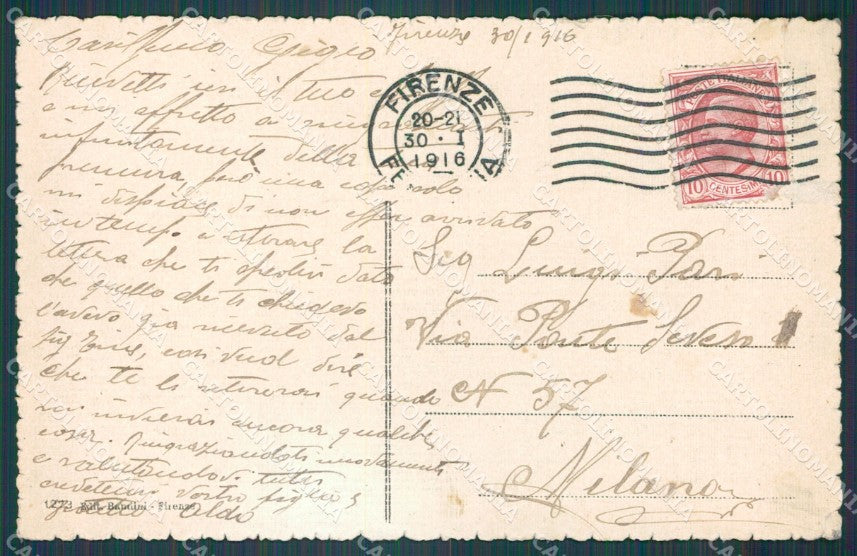 Firenze 30/1 916
Carissimo Gigio
Ricevetti ieri il tuo
e mi affretto a
infinitamente della
premura, però una cosa solo
mi dispiace di non esser arrivato
in tempo a ritirare la
lettera che ti spedivi dato
che quello che ti chiedevo
l'avevo già ricevuto dal
così vuol dire
che te la ritirerai quando
mi invierai ancora qualche
cosa. Ringraziandoti nuovamente
e salutandovi tutti
credetemi vostro figlio e
Aldo
1273 Edit. Bandini - Firenze
FIRENZE
20-21
30 · I
1916
POSTE ITALIANE
10 CENTESIMI 10
Sig Luigi Pari
Via Ponte Seveso
N 57
Milano
CARTOLINOMANIA